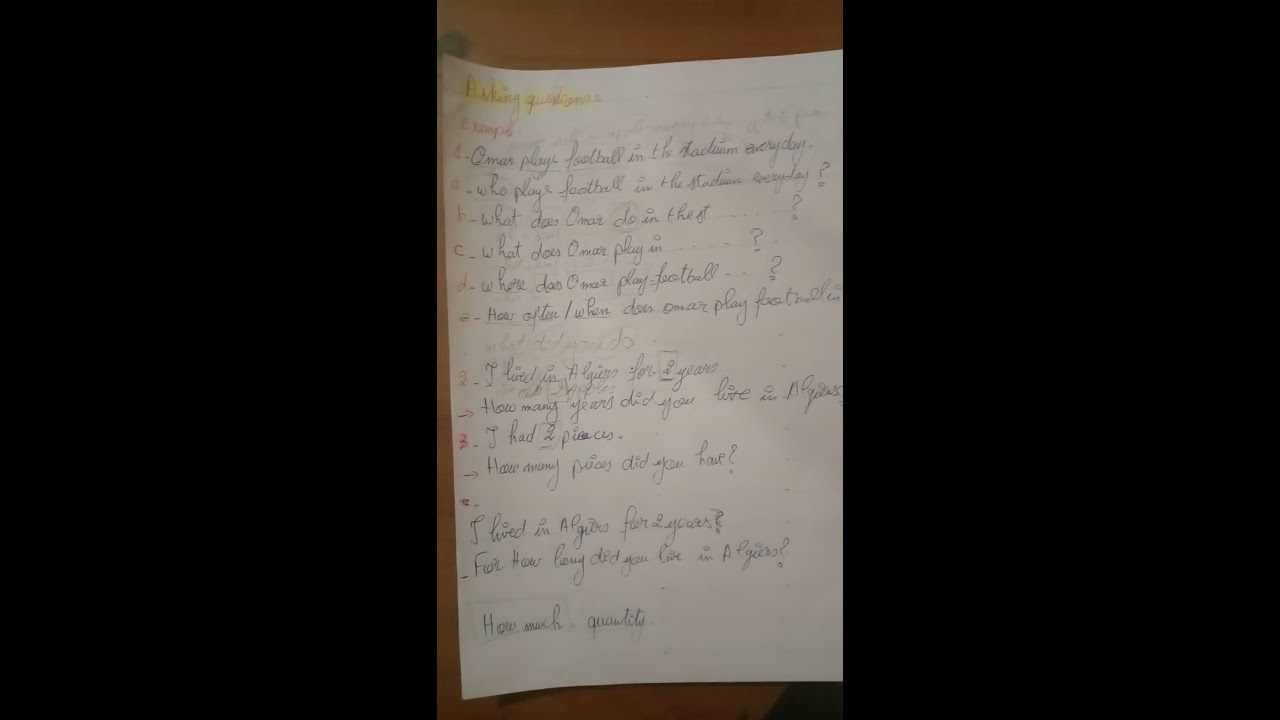 Asking questions:
Example:
1- Omar plays football in the stadium everyday.
a- who plays football in the stadium everyday?
b- what does Omar do in the st ........?
c- what does Omar play in ........?
d- where does Omar play football ...?
e- How often / when does omar play football in
what did you do.
2- I lived in Algiers for 2 years
2 apples
→ How many years did you live in Algiers?
3- I had 2 pieces.
→ How many pieces did you have?
I lived in Algiers for 2 years?
- For How long did you live in Algiers?
How much quantity